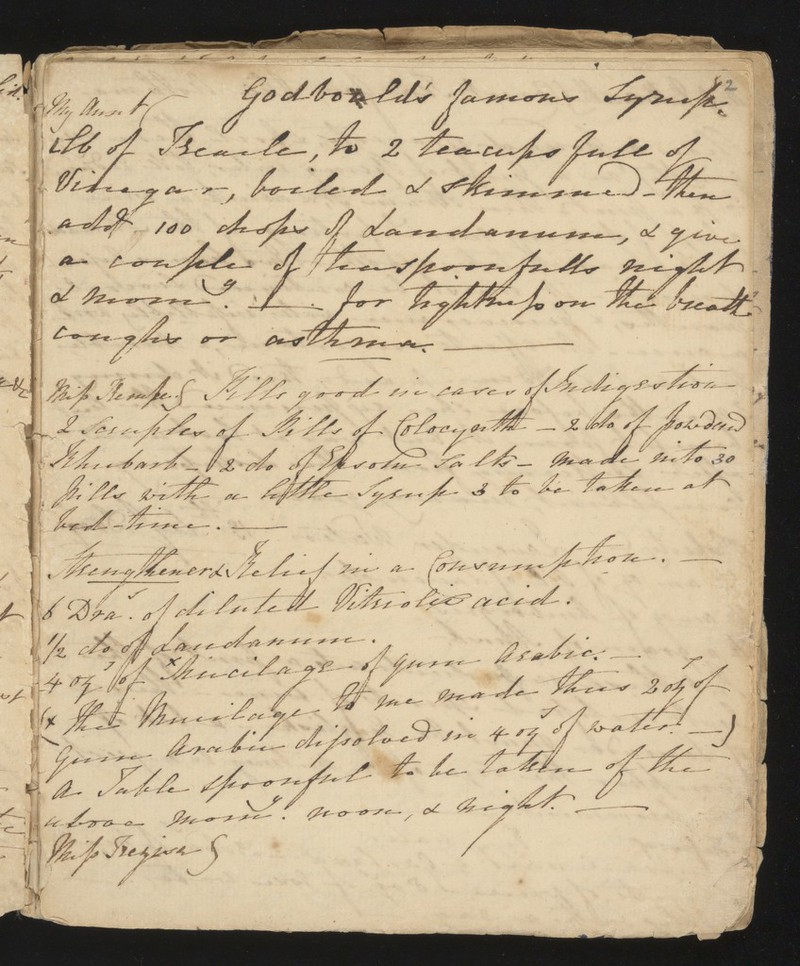 2
Godbould's famous Syrup.
My Aunt
1 lb of Treacle, to 2 teacups full of
Vinegar, boiled & skimmed - then
add 100 drops of Laudanum, & give
a couple of teaspoonfulls night
& morng. — for tightness on the breath
coughs or asthma. —
Miss Kempe } Pills good in cases of Indigestion
2 Scruples of Pills of Colocynth - 2 do of powdered
Rhubarb - 2 do of Epsom Salts - made into 30
Pills with a little Syrup 3 to be taken at
bed-time. —
Strengthener & Relief in a Consumption. —
6 Dras. of diluted Vitriolic acid.
1/2 do of Laudanum.
4 ozs of x Mucilage of gum Arabic. —
(x the Mucilage to me made thus 2 ozs of
Gum Arabic dissolved in 4 ozs of water. —)
A Table spoonful to be taken of the
above morng. noon, & night. —
Miss }